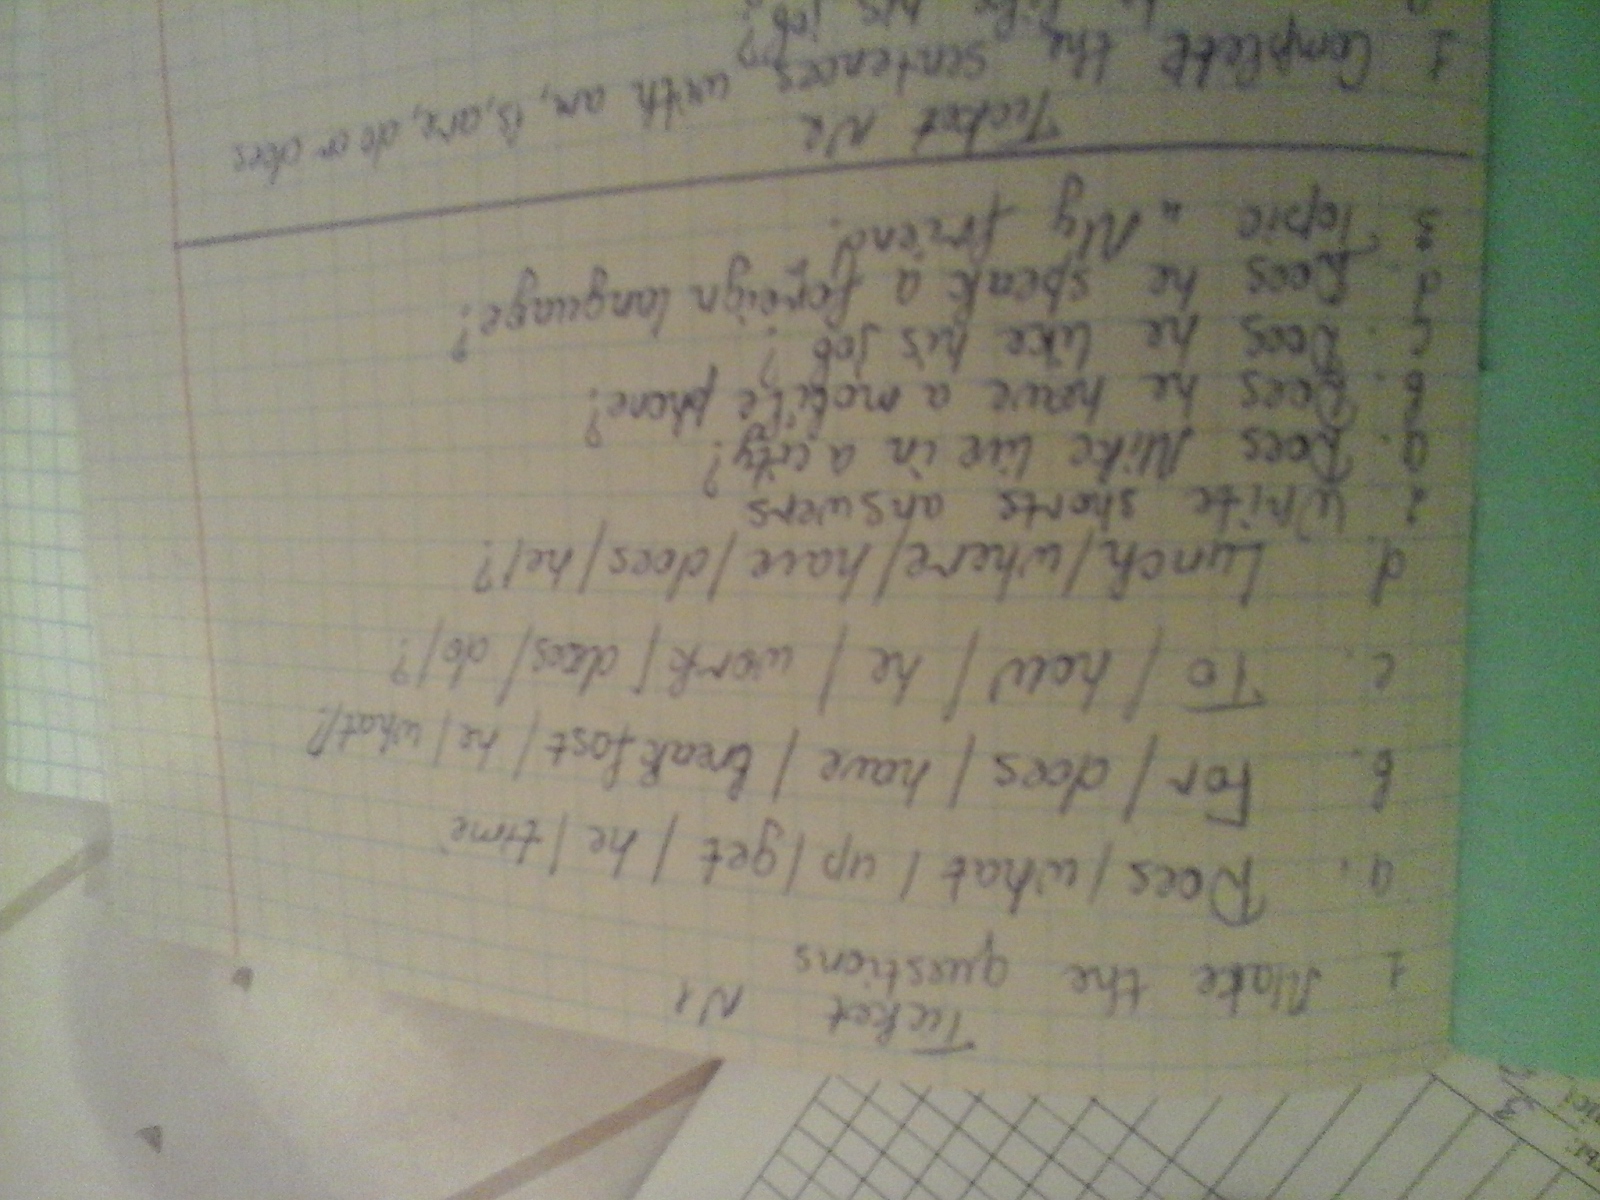 Ticket N1
1 Make the questions
a. Does / what / up / get / he / time
b. For / does / have / breakfast / he / what/?
c. To / how / he / work / does / do /?
d. Lunch / where / have / does / he/?
2. Write shorts answers
a. Does Mike live in a city?
b. Does he have a mobile phone?
c. Does he like his job?
d. Does he speak a foreign language?
3. Topic "My friend.
Ticket N2
1 Complete the sentences with am, is, are, do or does
he like his job?